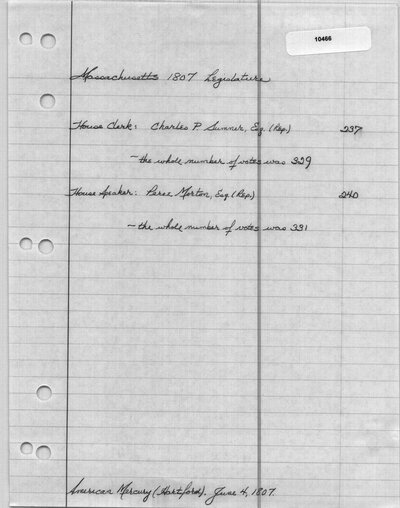 10466
Massachusetts 1807 Legislature
House Clerk: Charles P. Sumner, Esq. (Rep.) 237
- the whole number of votes was 329
House Speaker: Perez Morton, Esq. (Rep.) 240
- the whole number of votes was 331
American Mercury (Hartford). June 4, 1807.